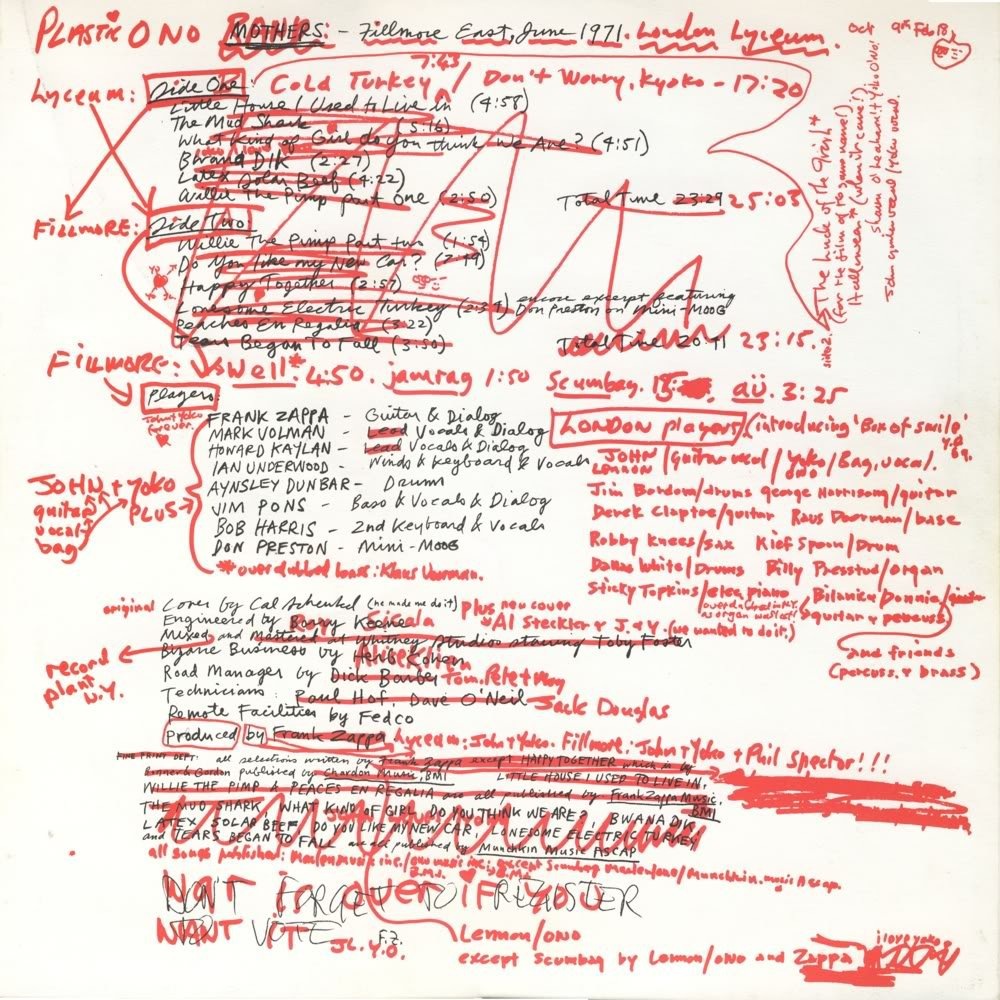 PLASTIC ONO BAND MOTHERS: - Fillmore East, June 1971. London Lyceum.
Lyceum: Side One: Cold Turkey 7:43 / Don't Worry, Kyoko - 17:20
Little House I Used to Live in (4:58)
The Mud Shark (5:16)
What Kind of Girl do You think We Are? (4:51)
Bwana DIK (2:27)
Latex Solar Beef (4:22)
Willie The Pimp part One (2:50) Total Time 23:29 25:03
FILLMORE: Side Two:
Willie The Pimp Part two (1:54)
Do You like my New Car?
Happy Together (2:57)
Lonesome Electric Turkey encore excerpt featuring
Don Preston on Mini-MOOG
Peaches En Regalia (3:22)
Tears Began To Fall (3:50) Total Time 23:15.
FILLMORE: well* 4:50. jamrag 1:50 Scumbag. aü. 3:25
Players:
John + Yoko forever.
FRANK ZAPPA - Guitar & Dialog
MARK VOLMAN - Lead Vocals & Dialog
HOWARD KAYLAN - Lead Vocals & Dialog
IAN UNDERWOOD - Winds & Keyboard & Vocals
AYNSLEY DUNBAR - Drums
JIM PONS - Bass & Vocals & Dialog
BOB HARRIS - 2nd Keyboard & Vocals
DON PRESTON - Mini-MOOG
*overdubbed bass: Klaus Voorman.
JOHN + YOKO
guitar
vocal
bag
PLUS
LONDON players (introducing 'Box of smile'
JOHN LENNON / guitar vocal / Yoko ONO / Bag, vocal.
Jim Bordom/drums George Harrisong/guitar
Derek Claptoe/guitar Raus Doorman/base
Robby Knees/sax Kief Spoon/Drum
Dallas White/Drums Billy Presstud/organ
Sticky Topkins/elec piano Bilanie & Donnie/guitar
guitar + percuss
and friends
(percuss. + brass)
original Cover by Cal Schenkel (he made me do it) plus new cover
Al Steckler + J & Y. (we wanted to do it.)
Engineered by Barry Keene
Mixed and mastered at Whitney Studios starring Toby Foster
record plant N.Y.
Bizarre Business by Herb Cohen
Road Manager by Dick Barber Tom. Pete + May
Technicians: Paul Hof, Dave O'Neil Jack Douglas
Remote Facilities by Fedco
Produced by Frank Zappa Lyceum: John + Yoko. Fillmore: John + Yoko + Phil Spector!!!
FINE PRINT DEPT: all selections written by Frank Zappa except HAPPY TOGETHER which is by
Bonner & Gordon published by Chardon Music, BMI LITTLE HOUSE I USED TO LIVE IN,
WILLIE THE PIMP & PEACES EN REGALIA are all published by Frank Zappa Music, BMI
THE MUD SHARK, WHAT KIND OF GIRL DO YOU THINK WE ARE?, BWANA DIK,
LATEX SOLAR BEEF, DO YOU LIKE MY NEW CAR, LONESOME ELECTRIC TURKEY
and TEARS BEGAN TO FALL are all published by Munchkin Music ASCAP
all songs published: Maclen music inc./ono music inc: except Scumbag Maclen/ono/Munchkin. music Ascap.
B.M.I. B.M.I.
DON'T FORGET TO REGISTER
TO VOTE F.Z.
NOT over IF YOU
WANT IT JL. Y.O.
Lennon/ONO
except Scumbag by Lennon/ONO and Zappa
i love yoko